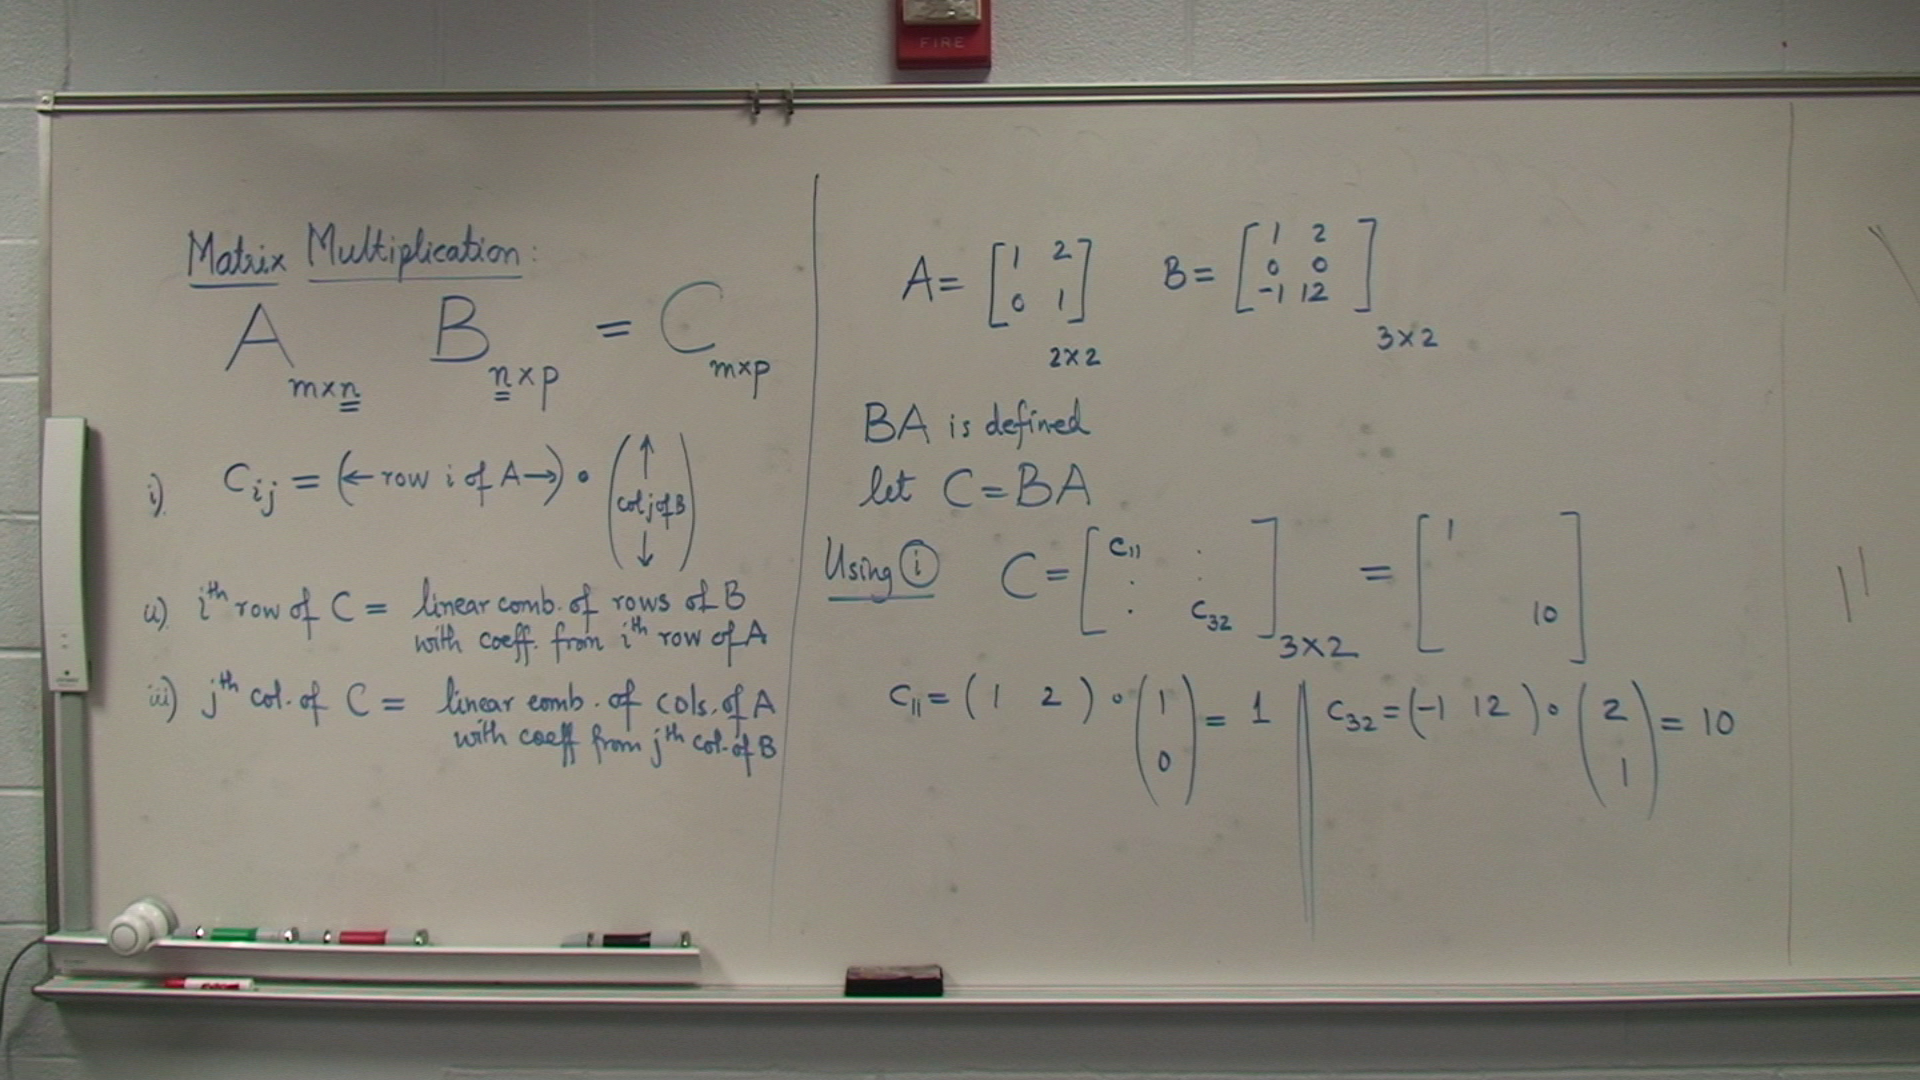 FIRE
Matrix Multiplication:
A m×n B n×p = C m×p
i) Cij = (← row i of A →) • (↑ col j of B ↓)
ii) i th row of C = linear comb. of rows of B
with coeff. from i th row of A
iii) j th col. of C = linear comb. of cols. of A
with coeff from j th col. of B
A = [1 2
0 1] 2×2
B = [1 2
0 0
-1 12] 3×2
BA is defined
let C = BA
Using (i) C = [C11 .
. .
. C32] 3×2 = [1
10]
C11 = (1 2) • (1
0) = 1
C32 = (-1 12) • (2
1) = 10